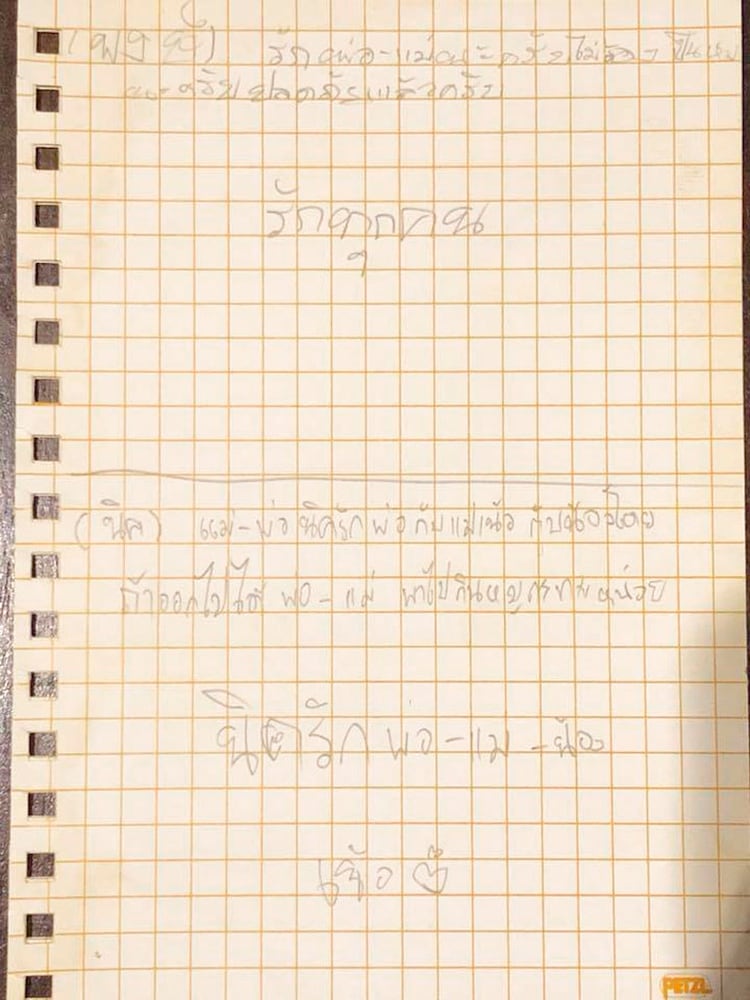 (พงษ์) รักพ่อ-แม่นะครับไม่ต้องเป็นห่วง
นะครับปลอดภัยแล้วครับ
รักทุกคน
(นิค) แม่-พ่อนิครักพ่อกับแม่เน้อ กับน้องโตย
ถ้าออกไปได้ พ่อ-แม่ พาไปกินหมูกระทะหน่อย
นิครักพ่อ-แม่-น้อง
เน้อ
PETZL